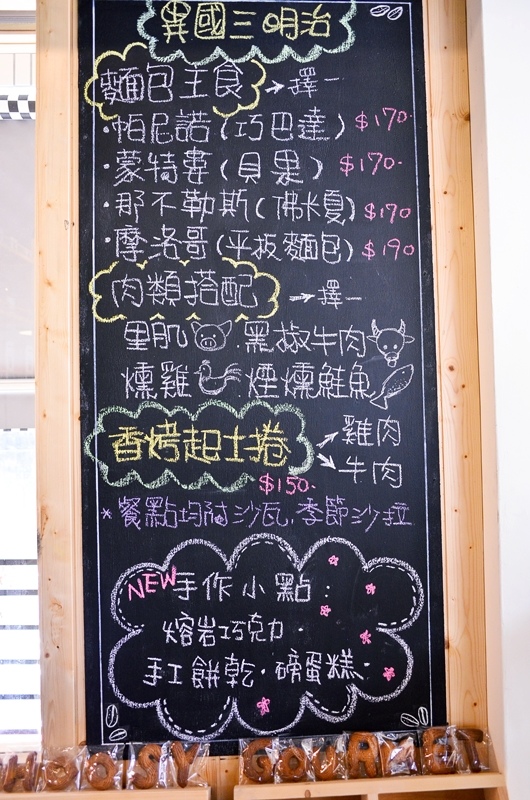 異國三明治
麵包主食 → 擇一
·帕尼諾(巧巴達) $170.
·蒙特婁(貝果) $170.
·那不勒斯(佛卡夏) $170
·摩洛哥(平板麵包) $190
肉類搭配 → 擇一
里肌 黑椒牛肉
燻雞 煙燻鮭魚
香烤起士捲 → 雞肉
→ 牛肉
$150.
*餐點均附沙瓦.季節沙拉
NEW手作小點:
熔岩巧克力.
手工餅乾.磅蛋糕.
HOOSY GOURMET